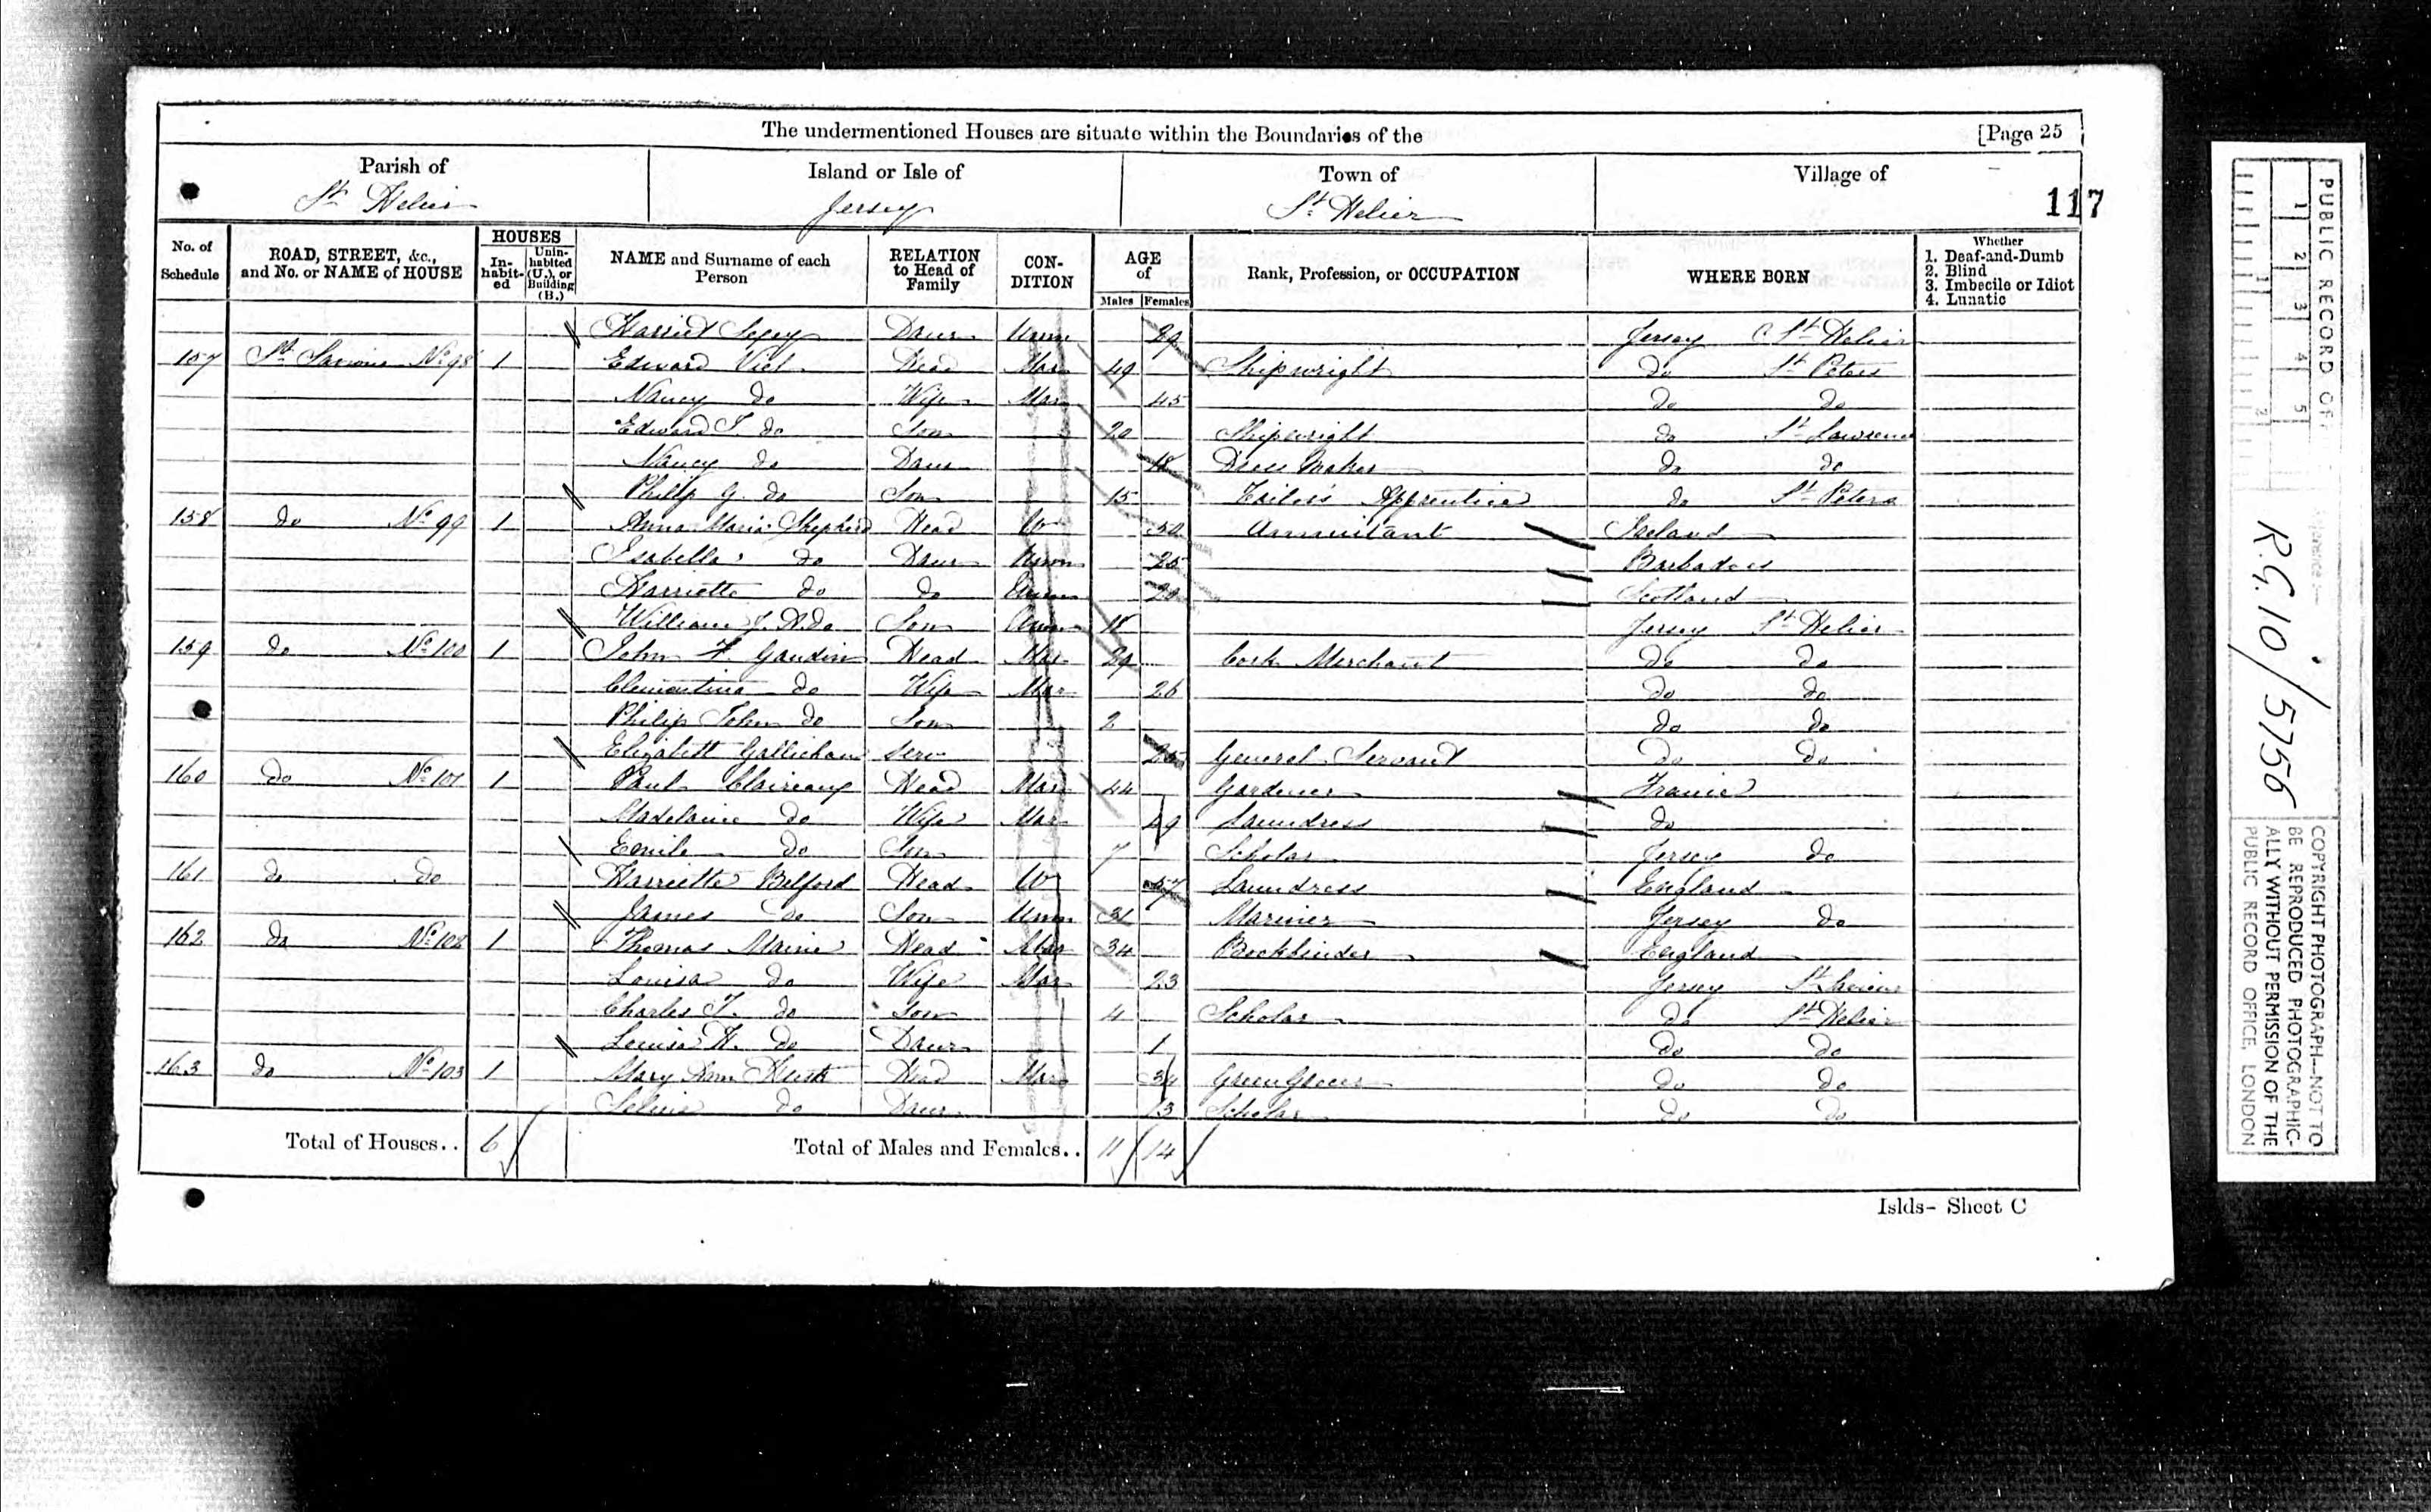 The undermentioned Houses are situate within the Boundaries of the [Page 25
Parish of Island or Isle of Town of Village of
St Helier Jersey St Helier
117
No. of Schedule ROAD, STREET, &c., and No. or NAME of HOUSE HOUSES Inhabited Uninhabited (U.), or Building (B.) NAME and Surname of each Person RELATION to Head of Family CONDITION AGE of Males Females Rank, Profession, or OCCUPATION WHERE BORN Whether 1. Deaf-and-Dumb 2. Blind 3. Imbecile or Idiot 4. Lunatic
Harriet Daur Unm 29 Jersey St Helier
157 St Saviour No 98 1 Edward Head Mar 49 Shipwright do St Peters
Nancy do Wife Mar 45 do do
Edward do Son 20 Shipwright do St Lawrence
Nancy do Daur 18 Dress Maker do do
Philip G. do Son 15 Tailor's Apprentice do St Peters
158 do No 99 1 Anna Maria Shepherd Head W 50 Annuitant Ireland
Isabella do Daur Unm 25 Barbadoes
Harriette do do Unm 20 Scotland
William do Son Unm 18 Jersey St Helier
159 do No 100 1 John F. Gaudin Head Mar 29 Cork Merchant do do
Clementina do Wife Mar 26 do do
Philip John do Son 2 do do
Elizabeth Gallichan Serv 25 General Servant do do
160 do No 101 1 Paul Head Mar 44 Gardener France
Madelaine do Wife Mar 49 Laundress do
Emile do Son 7 Scholar Jersey do
161 do do Harriette Belford Head W 57 Laundress England
James do Son Unm 31 Mariner Jersey do
162 do No 102 1 Thomas Maine Head Mar 34 Bookbinder England
Louisa do Wife Mar 23 Jersey
Charles T. do Son 4 Scholar do St Helier
Louisa H. do Daur 1 do do
163 do No 103 1 Mary Ann Head Mar 34 Green Grocer do do
Selina do Daur 13 Scholar do do
Total of Houses.. 6 Total of Males and Females.. 11 14
Islds- Sheet C
PUBLIC RECORD OF
1 2 3 4 5
R.G. 10/5756
COPYRIGHT PHOTOGRAPH—NOT TO
BE REPRODUCED PHOTOGRAPHIC-
ALLY WITHOUT PERMISSION OF THE
PUBLIC RECORD OFFICE, LONDON